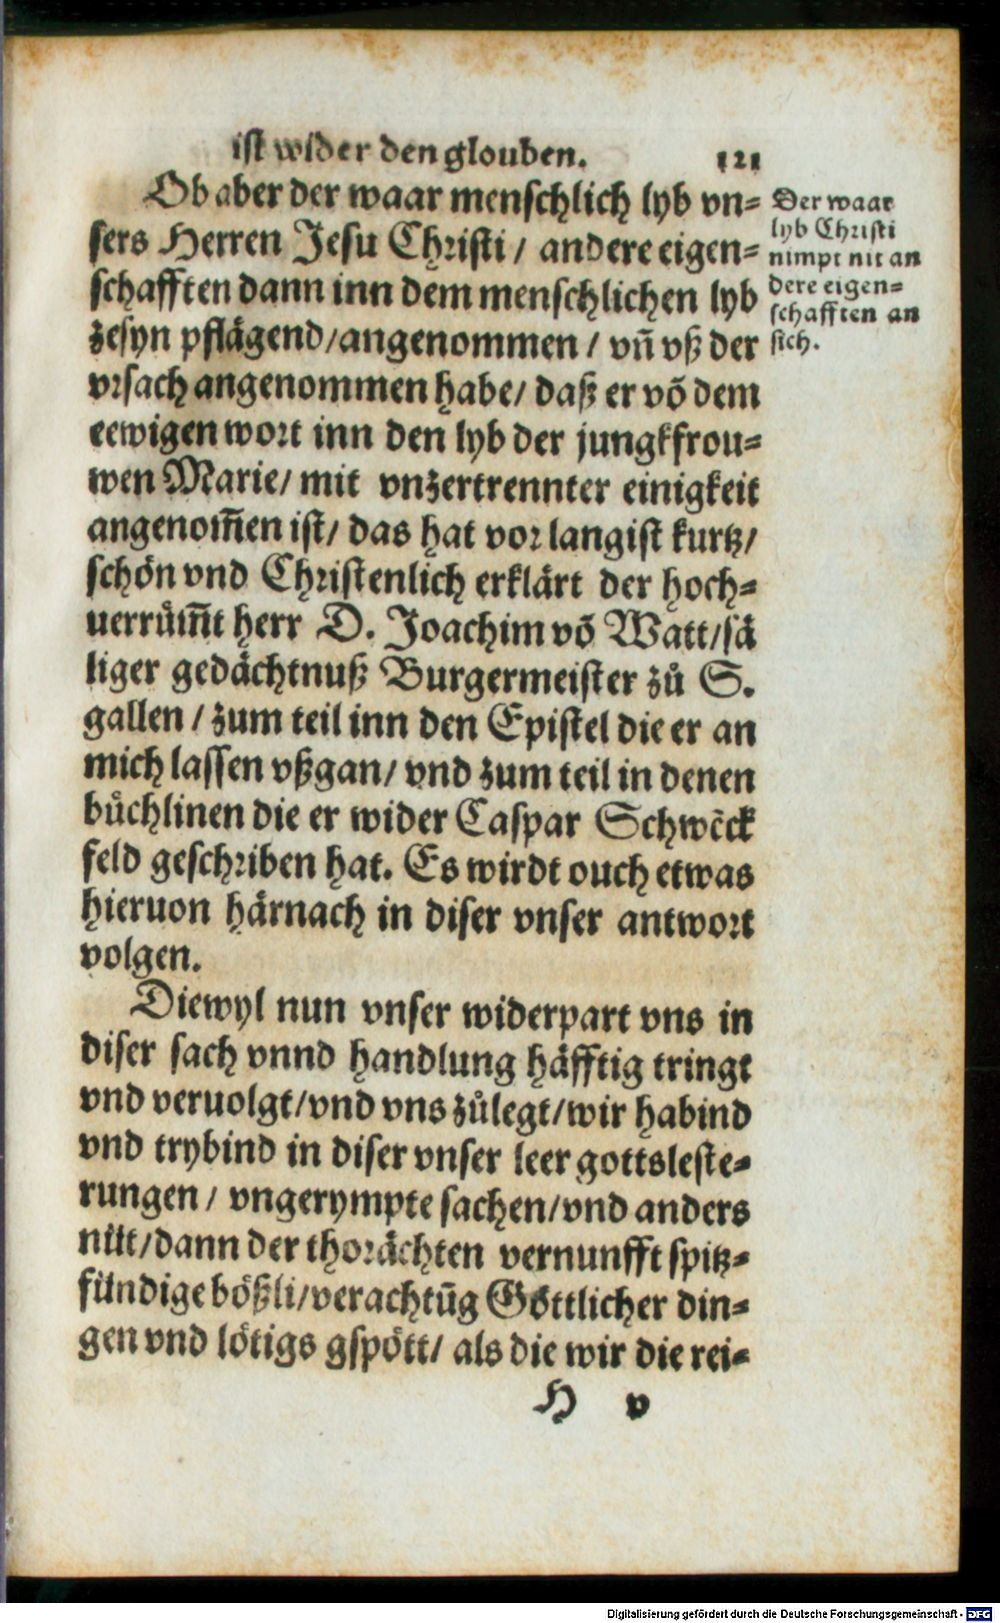 ist wider den glouben. 121
Ob aber der waar menschlich lyb vn=
sers Herren Jesu Christi / andere eigen=
schafften dann inn dem menschlichen lyb
zesyn pflägend/angenommen / vn̄ vß der
vrsach angenommen habe/ daß er vō dem
eewigen wort inn den lyb der jungkfrou=
wen Marie/ mit vnzertrennter einigkeit
angenom̄en ist/ das hat vor langist kurtz/
schön vnd Christenlich erklärt der hoch=
uerrům̄t herr D. Joachim vō Watt/sä
liger gedächtnuß Burgermeister zů S.
gallen / zum teil inn den Epistel die er an
mich lassen vßgan/ vnd zum teil in denen
bůchlinen die er wider Caspar Schwēck
feld geschriben hat. Es wirdt ouch etwas
hieruon härnach in diser vnser antwort
volgen.
Diewyl nun vnser widerpart vns in
diser sach vnnd handlung häfftig tringt
vnd veruolgt/vnd vns zůlegt/wir habind
vnd trybind in diser vnser leer gottsleste=
rungen / vngerympte sachen/vnd anders
nüt/dann der thorächten vernunfft spitz=
fündige bößli/verachtūg Göttlicher din=
gen vnd lötigs gspött/ als die wir die rei=
H v
Der waar
lyb Christi
nimpt nit an
dere eigen=
schafften an
sich.
Digitalisierung gefördert durch die Deutsche Forschungsgemeinschaft - DFG